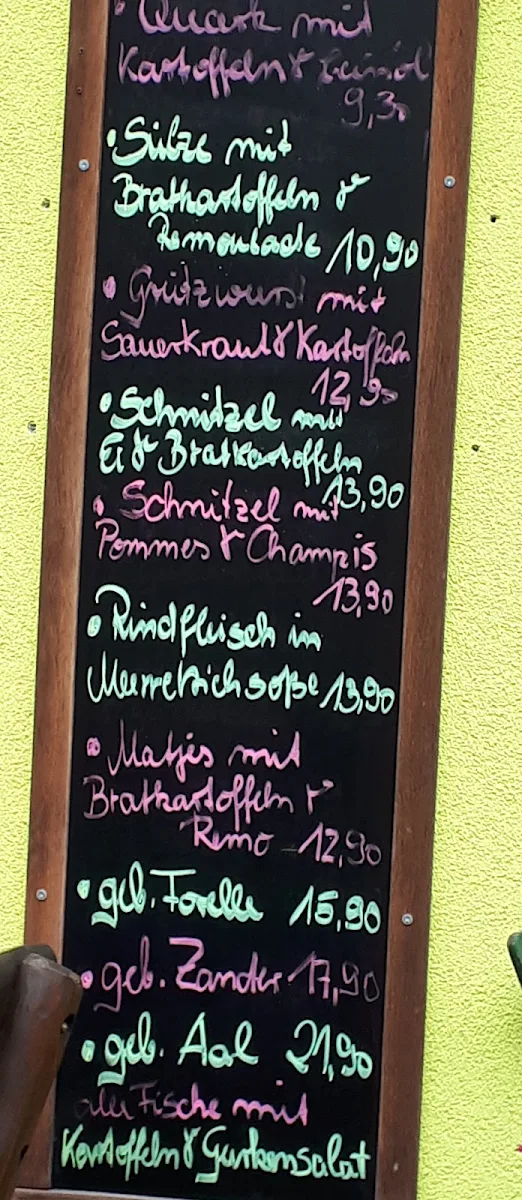 • Quark mit
Kartoffeln & Leinöl
9,30
• Sülze mit
Bratkartoffeln &
Remoulade 10,90
• Grützwurst mit
Sauerkraut & Kartoffeln
12,90
• Schnitzel mit
Ei & Bratkartoffeln
13,90
• Schnitzel mit
Pommes & Champis
13,90
• Rindfleisch in
Meerretichsoße 13,90
• Matjes mit
Bratkartoffeln &
Remo 12,90
• geb. Forelle 15,90
• geb. Zander 17,90
• geb. Aal 21,90
alle Fische mit
Kartoffeln & Gurkensalat